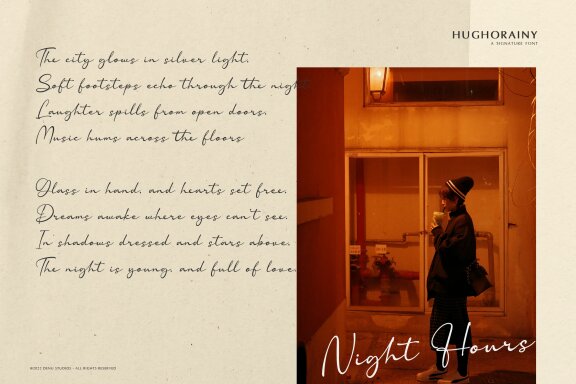 HUGHORAINY
A SIGNATURE FONT
The city glows in silver light,
Soft footsteps echo through the night
Laughter spills from open doors,
Music hums across the floors
Glass in hand, and hearts set free,
Dreams awake where eyes can't see.
In shadows dressed and stars above,
The night is young, and full of love.
Night Hours
©2025 DENU STUDIOS - ALL RIGHTS RESERVED